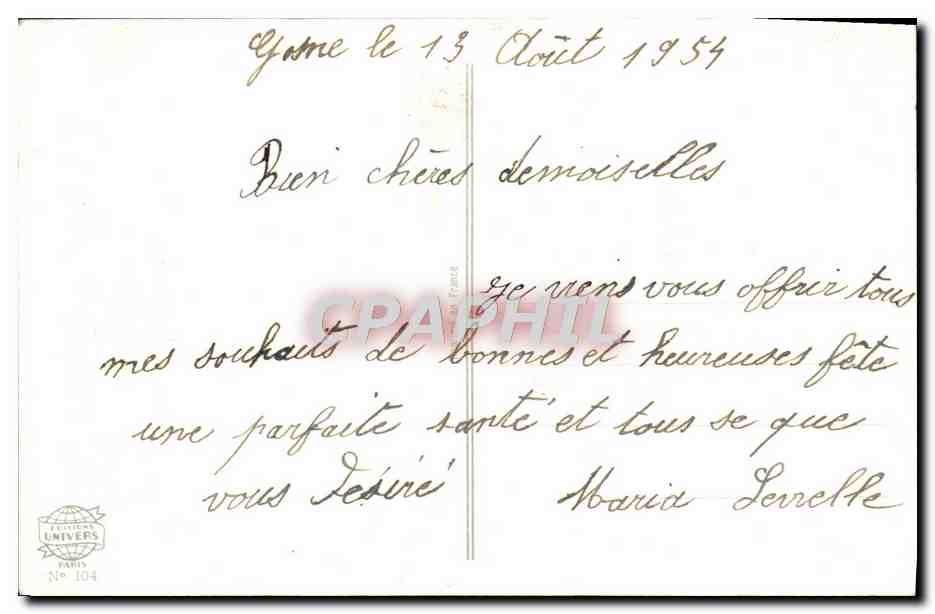 Gosne le 13 Août 1954
Bien chères demoiselles
je viens vous offrir tous
mes souhaits de bonnes et heureuses fête
une parfaite santé et tous se que
vous désiré
Maria Levrelle
France
CPAPHIL
EDITIONS
UNIVERS
PARIS
No 104